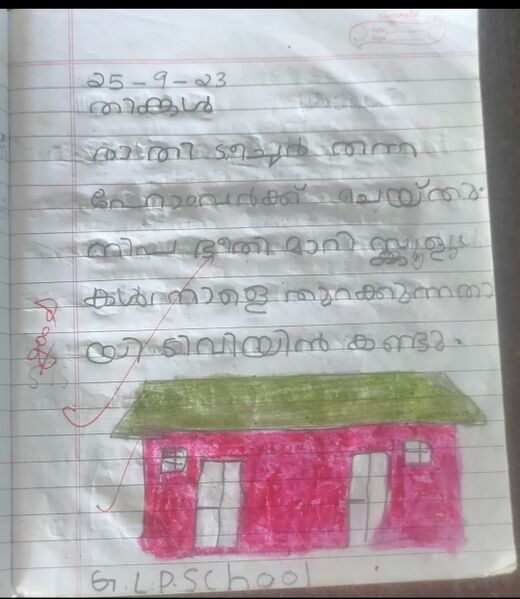 classmate
Date
Page
25-9-23
തിങ്കൾ
താത്തി ടീച്ചർ തന്ന
ഹോംവർക്ക് ചെയ്തു.
നിപ ഭീതി മാറി സ്കൂളു
കൾ നാളെ തുറക്കുന്നതാ
യി ടിവിയിൽ കണ്ടു.
G.L.P.School